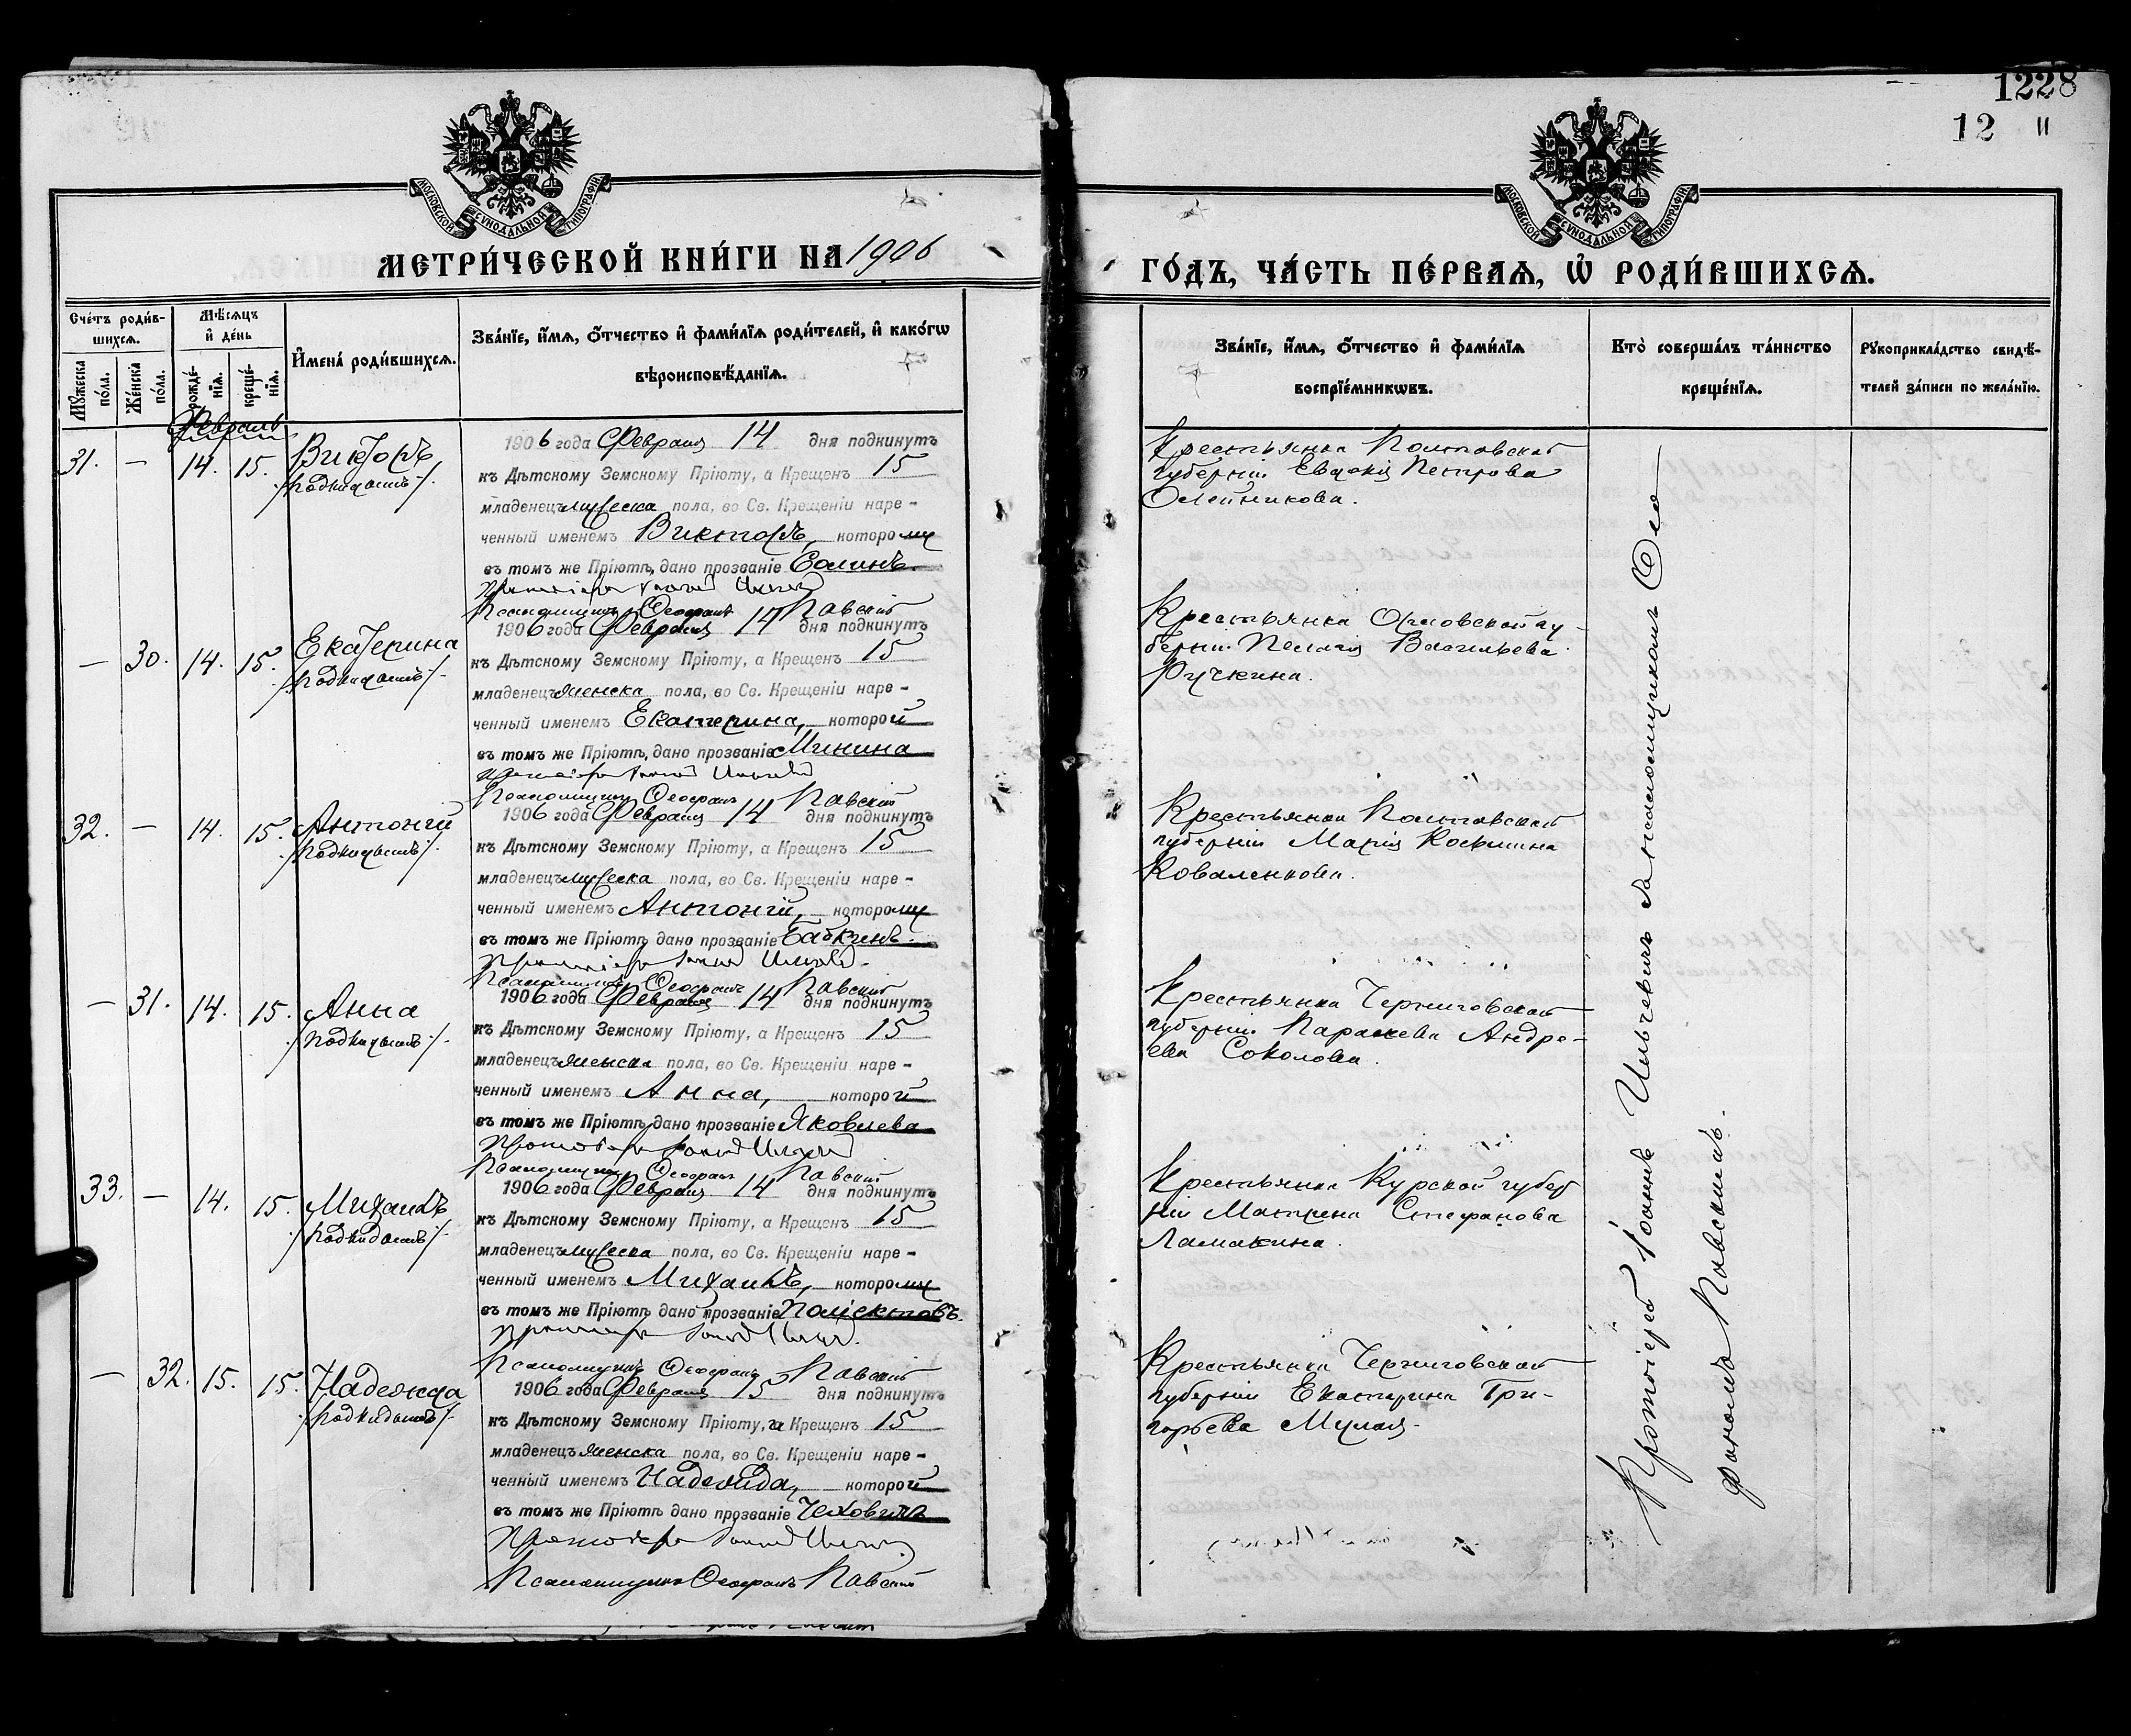 1228
12
МОСКОВСКОЙ СѴНОДАЛЬНОЙ ТИПОГРАФІИ
МОСКОВСКОЙ СѴНОДАЛЬНОЙ ТИПОГРАФІИ
МЕТРИ́ЧЕСКОЙ КНИ́ГИ НА 1906
ГО́ДЪ, ЧА́СТЬ ПЕ́РВАѦ, Ѡ҆ РОДИ́ВШИХСѦ.
Сче́тъ роди́в-
шихсѧ.
Мꙋжеска по́ла.
Же́нска по́ла.
Мѣ́сѧцъ
и҆ де́нь
рожде́-
нїѧ.
креще́-
нїѧ.
И҆мена̀ роди́вшихсѧ.
Зва́нїе, и҆́мѧ, ѻ҆́тчество и҆ фами́лїѧ роди́телей, и҆ како́гѡ
вѣроисповѣ́данїѧ.
Зва́нїе, и҆́мѧ, ѻ҆́тчество и҆ фами́лїѧ
воспрїе́мникѡвъ.
Кто̀ соверша́лъ та́инство
креще́нїѧ.
Рꙋкоприкла́дство свидѣ́-
телей за́писи по жела́нїю.
Февраль
31. — 14. 15. Викторъ
/подкидышъ/.
1906 года Февраля 14 дня подкинутъ
къ Дѣтскому Земскому Пріюту, а Крещенъ 15
младенецъ мужеска пола, во Св. Крещеніи наре-
ченный именемъ Викторъ, которому
въ томъ же Пріютѣ, дано прозваніе Солинъ.
Протоіерей Іоаннъ
Псаломщикъ Ѳеофанъ Павскій
Крестьянка Полтавской
губерніи Евдокія Петрова
Олейникова.
— 30. 14. 15. Екатерина
/подкидышъ/.
1906 года Февраля 14 дня подкинутъ
къ Дѣтскому Земскому Пріюту, а Крещенъ 15
младенецъ женска пола, во Св. Крещеніи наре-
ченный именемъ Екатерина, которой
въ томъ же Пріютѣ, дано прозваніе Минина
Протоіерей Іоаннъ
Псаломщикъ Ѳеофанъ Павскій
Крестьянка Орловской гу-
берніи Пелагія Васильева
Ручкина.
32. — 14. 15. Антоній
/подкидышъ/.
1906 года Февраля 14 дня подкинутъ
къ Дѣтскому Земскому Пріюту, а Крещенъ 15
младенецъ мужеска пола, во Св. Крещеніи наре-
ченный именемъ Антоній, которому
въ томъ же Пріютѣ дано прозваніе Бабкинъ.
Протоіерей Іоаннъ
Псаломщикъ Ѳеофанъ Павскій
Крестьянка Полтавской
губерніи Марія Косьмина
Коваленкова.
— 31. 14. 15. Анна
/подкидышъ/.
1906 года Февраля 14 дня подкинутъ
къ Дѣтскому Земскому Пріюту, а Крещенъ 15
младенецъ женска пола, во Св. Крещеніи наре-
ченный именемъ Анна, которой
въ томъ же Пріютѣ, дано прозваніе Яковлева
Протоіерей Іоаннъ
Псаломщикъ Ѳеофанъ Павскій
Крестьянка Черниговской
губерніи Параскева Андре-
ева Соколова.
33. — 14. 15. Михаилъ
/подкидышъ/.
1906 года Февраля 14 дня подкинутъ
къ Дѣтскому Земскому Пріюту, а Крещенъ 15
младенецъ мужеска пола, во Св. Крещеніи наре-
ченный именемъ Михаилъ, которому
въ томъ же Пріютѣ дано прозваніе Поліектовъ.
Протоіерей Іоаннъ
Псаломщикъ Ѳеофанъ Павскій
Крестьянка Курской губер
ніи Матрена Стефанова
Ламакина.
— 32. 15. 15. Надежда
/подкидышъ/.
1906 года Февраля 15 дня подкинутъ
къ Дѣтскому Земскому Пріюту, а Крещенъ 15
младенецъ женска пола, во Св. Крещеніи наре-
ченный именемъ Надежда, которой
въ томъ же Пріютѣ дано прозваніе
Протоіерей Іоаннъ
Псаломщикъ Ѳеофанъ Павскій
Крестьянка Черниговской
губерніи Екатерина Гри-
горьева
Протоіерей Іоаннъ Ильчевичъ съ псаломщикомъ Ѳео
фаномъ Павскимъ.